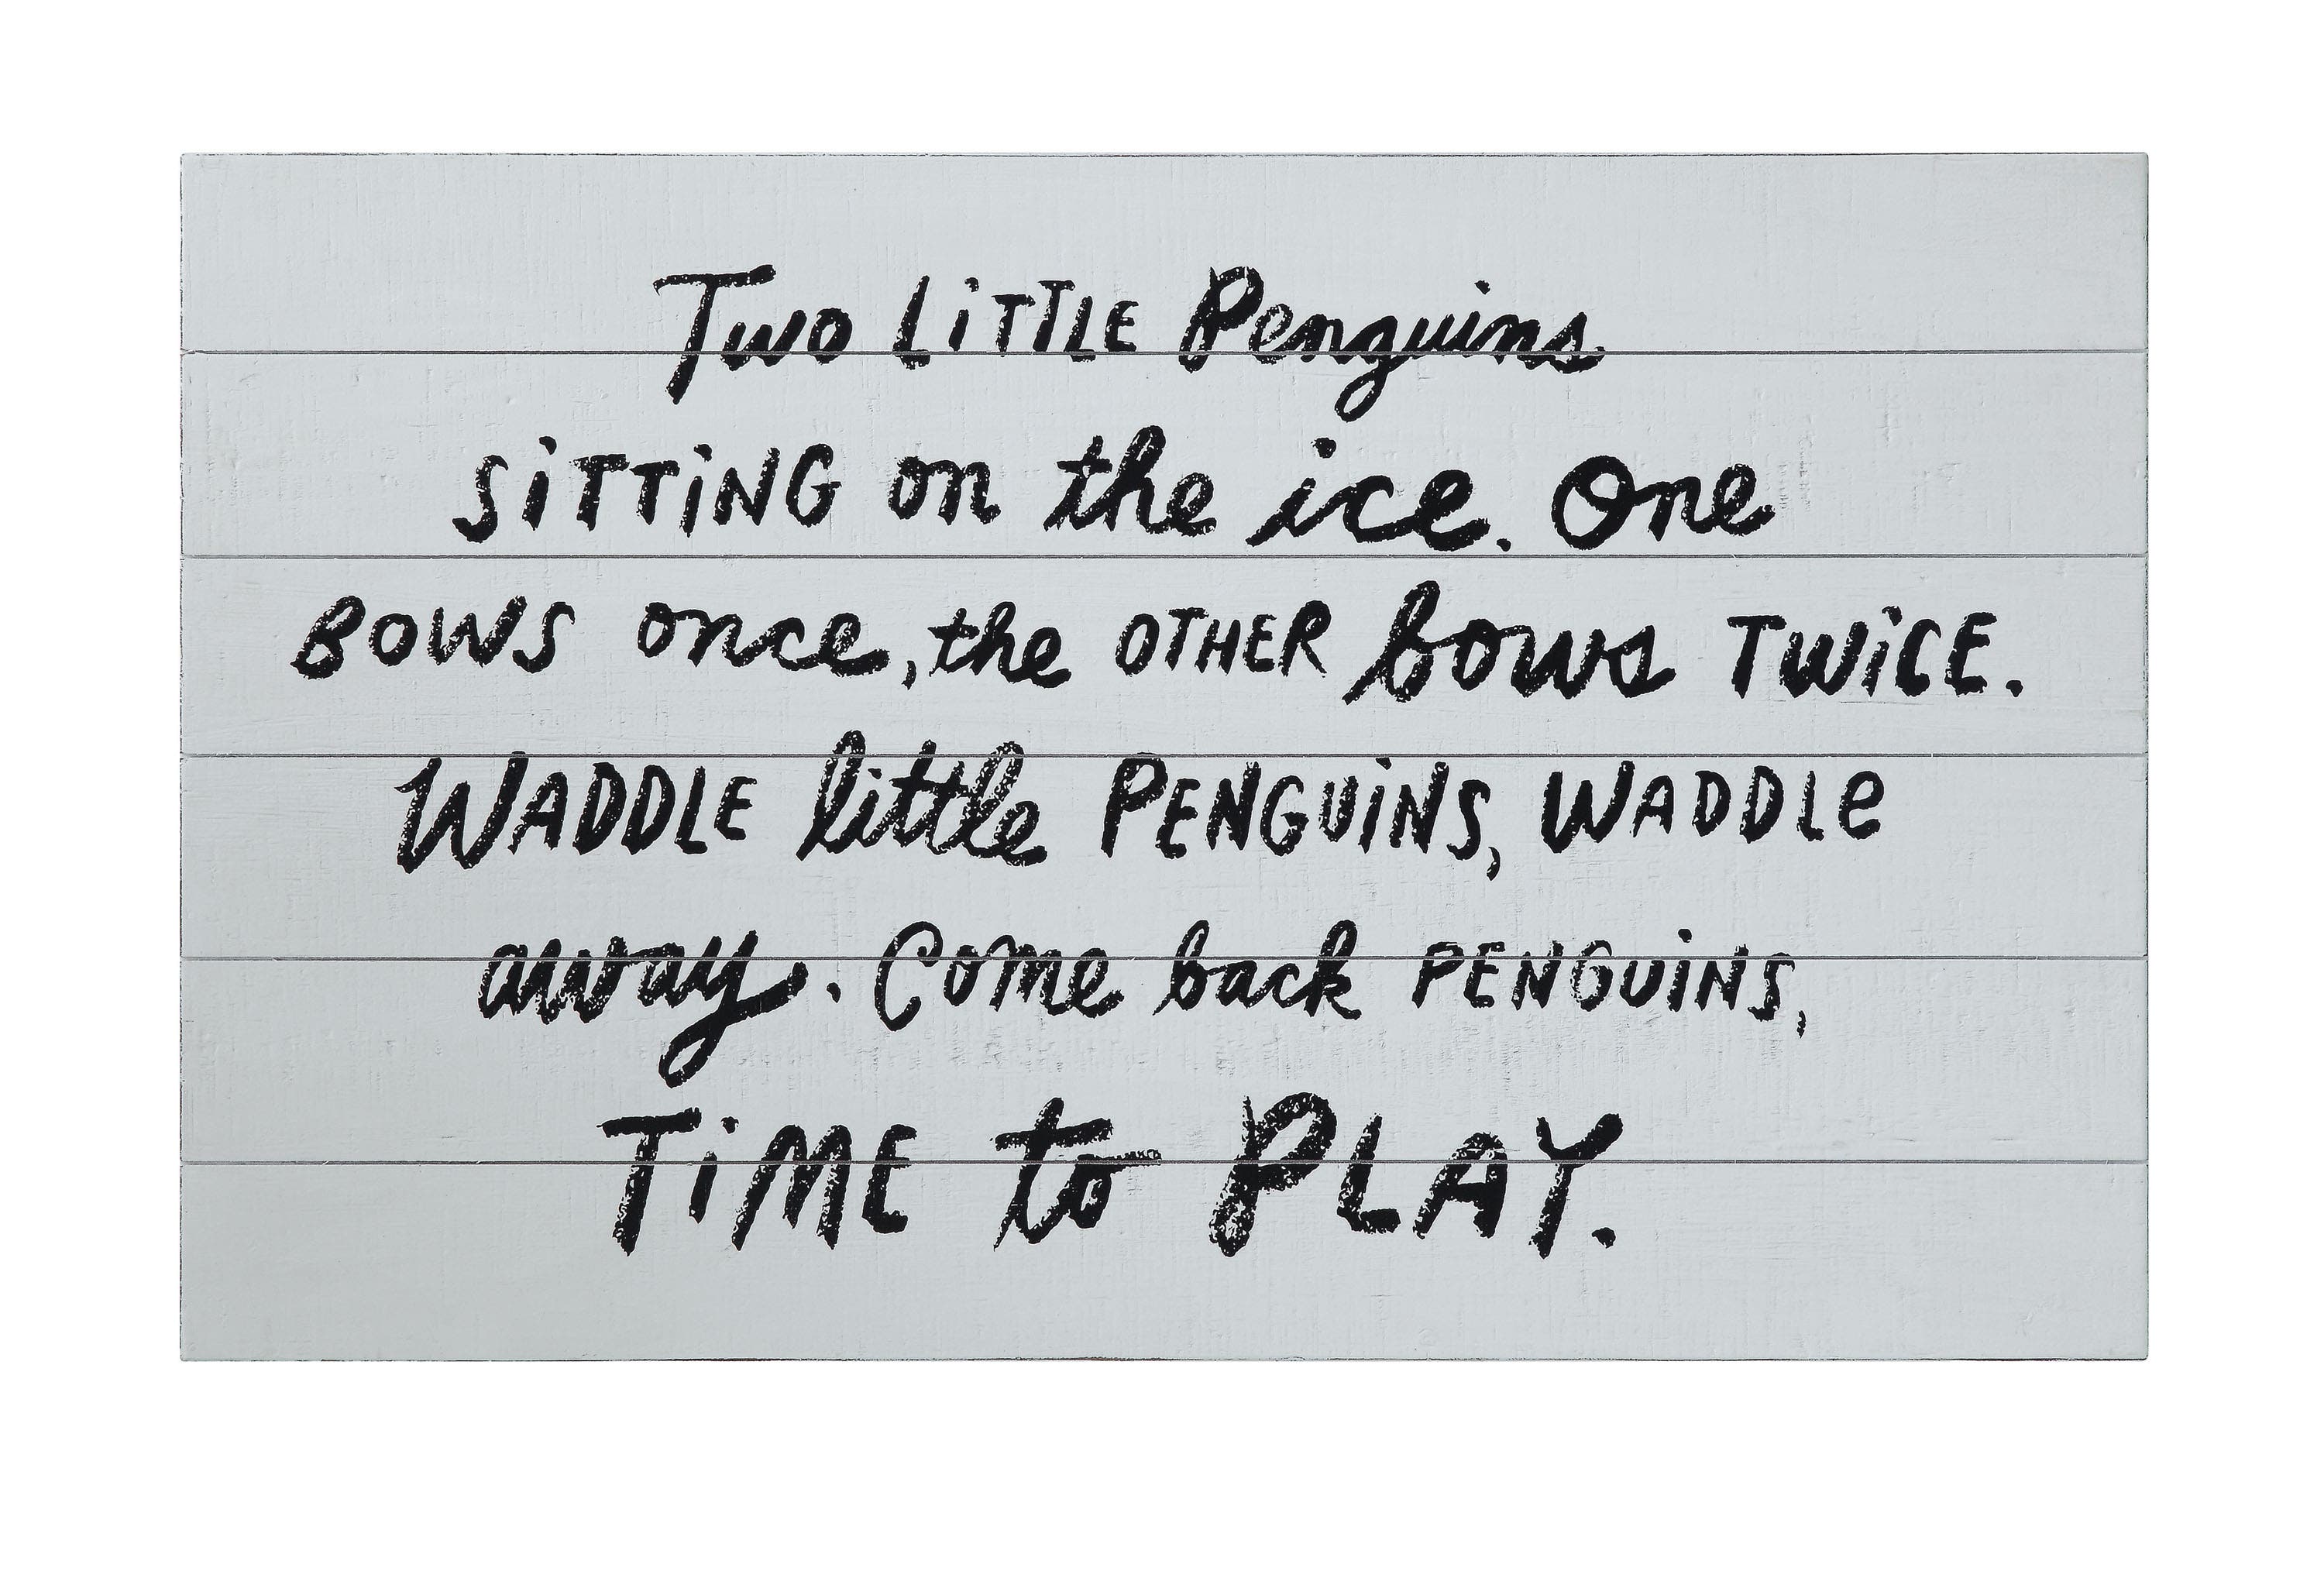 Two LiTTLE Penguins
SiTTiNG on the ice. One
BOWS once, the OTHER bows TWiCE.
WADDLE little PENGUiNS, WADDLe
away. Come back PENGUiNS,
TiME to PLAY.